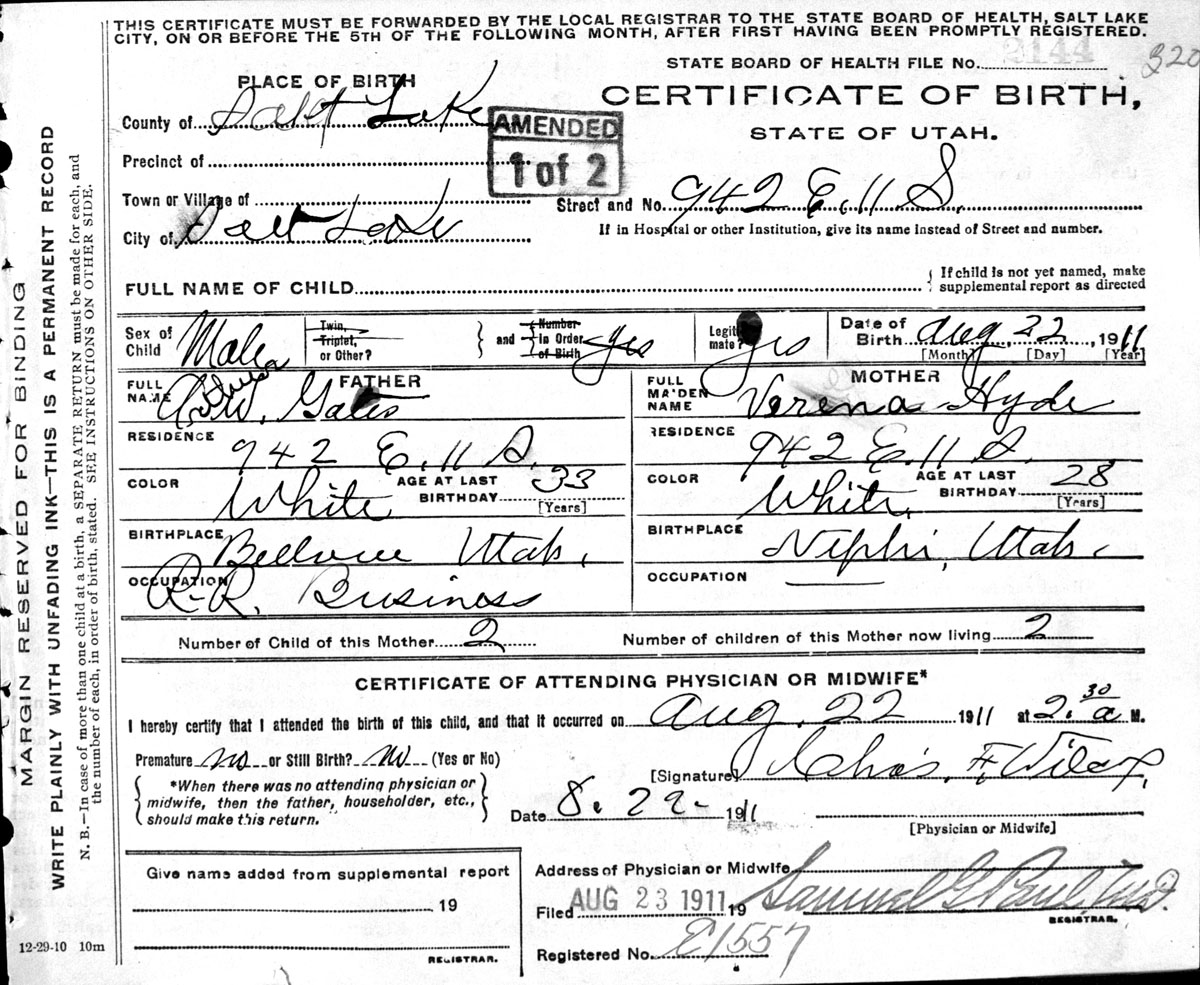 THIS CERTIFICATE MUST BE FORWARDED BY THE LOCAL REGISTRAR TO THE STATE BOARD OF HEALTH, SALT LAKE
CITY, ON OR BEFORE THE 5TH OF THE FOLLOWING MONTH, AFTER FIRST HAVING BEEN PROMPTLY REGISTERED.
STATE BOARD OF HEALTH FILE No. 2144 320
PLACE OF BIRTH
CERTIFICATE OF BIRTH,
STATE OF UTAH.
County of Salt Lake
AMENDED
1 of 2
Precinct of
Town or Village of
Street and No. 942 E. 11 S.
City of Salt Lake
If in Hospital or other Institution, give its name instead of Street and number.
FULL NAME OF CHILD
If child is not yet named, make
supplemental report as directed
Sex of Child Male
Twin, Triplet, or Other?
and
Number in Order of Birth yes
Legitimate? yes
Date of Birth Aug. 22, 1911
[Month] [Day] [Year]
FATHER
FULL NAME W. Gates
RESIDENCE 942 E. 11 S.
COLOR White AGE AT LAST BIRTHDAY 33 [Years]
BIRTHPLACE Bellvue Utah.
OCCUPATION R-R. Business
MOTHER
FULL MAIDEN NAME Verena Hyde
RESIDENCE 942 E. 11 S.
COLOR White. AGE AT LAST BIRTHDAY 28 [Years]
BIRTHPLACE Nephi, Utah.
OCCUPATION
Number of Child of this Mother 2 Number of children of this Mother now living 2
CERTIFICATE OF ATTENDING PHYSICIAN OR MIDWIFE*
I hereby certify that I attended the birth of this child, and that it occurred on Aug. 22 1911 at 2.30 a M.
Premature no or Still Birth? no (Yes or No)
*When there was no attending physician or
midwife, then the father, householder, etc.,
should make this return.
[Signature] Chas. F. Wilcox,
Date 8. 22- 1911
[Physician or Midwife]
Give name added from supplemental report
19
REGISTRAR.
Address of Physician or Midwife
Filed AUG 23 1911 19 Samuel G. Paul, M.D.
REGISTRAR.
Registered No. E1557
12-29-10 10m
MARGIN RESERVED FOR BINDING
WRITE PLAINLY WITH UNFADING INK—THIS IS A PERMANENT RECORD
N. B.—In case of more than one child at a birth, a SEPARATE RETURN must be made for each, and
the number of each, in order of birth, stated. SEE INSTRUCTIONS ON OTHER SIDE.